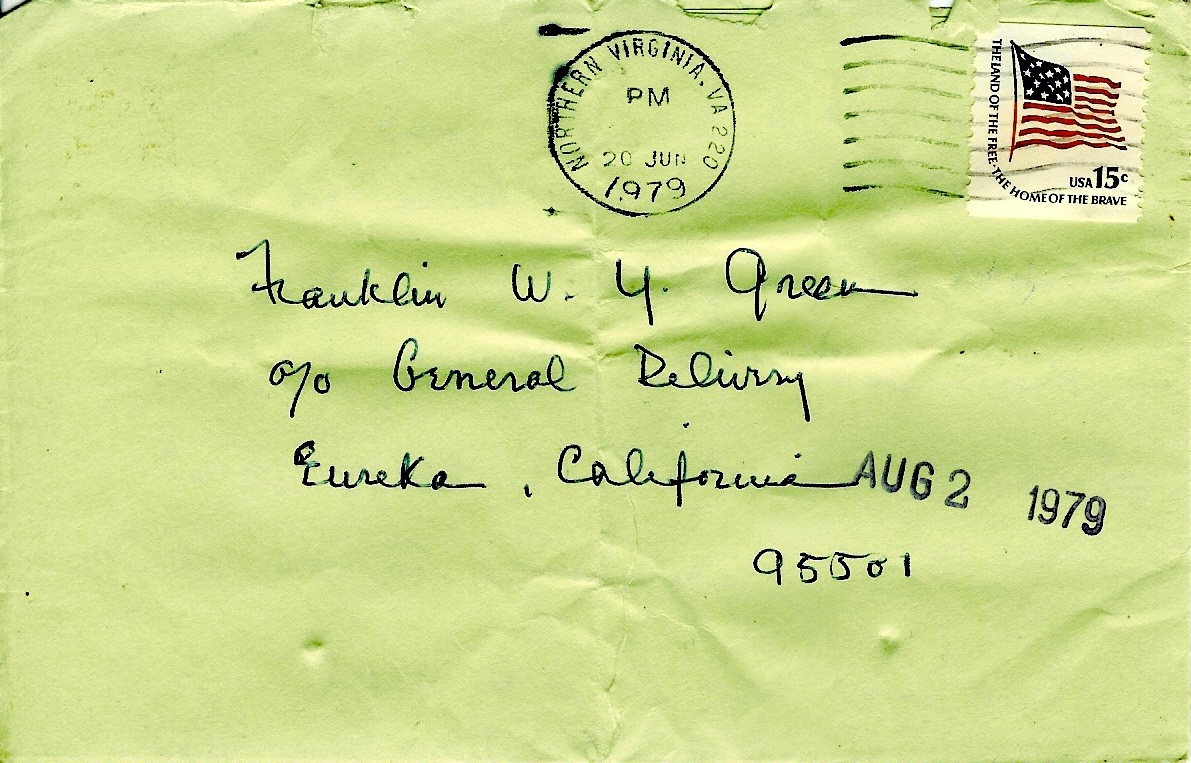 NORTHERN VIRGINIA, VA 220
PM
20 JUN
1979
THE LAND OF THE FREE · THE HOME OF THE BRAVE
USA 15c
Franklin W. Y. Green
c/o General Delivery
Eureka, California
AUG 2 1979
95501